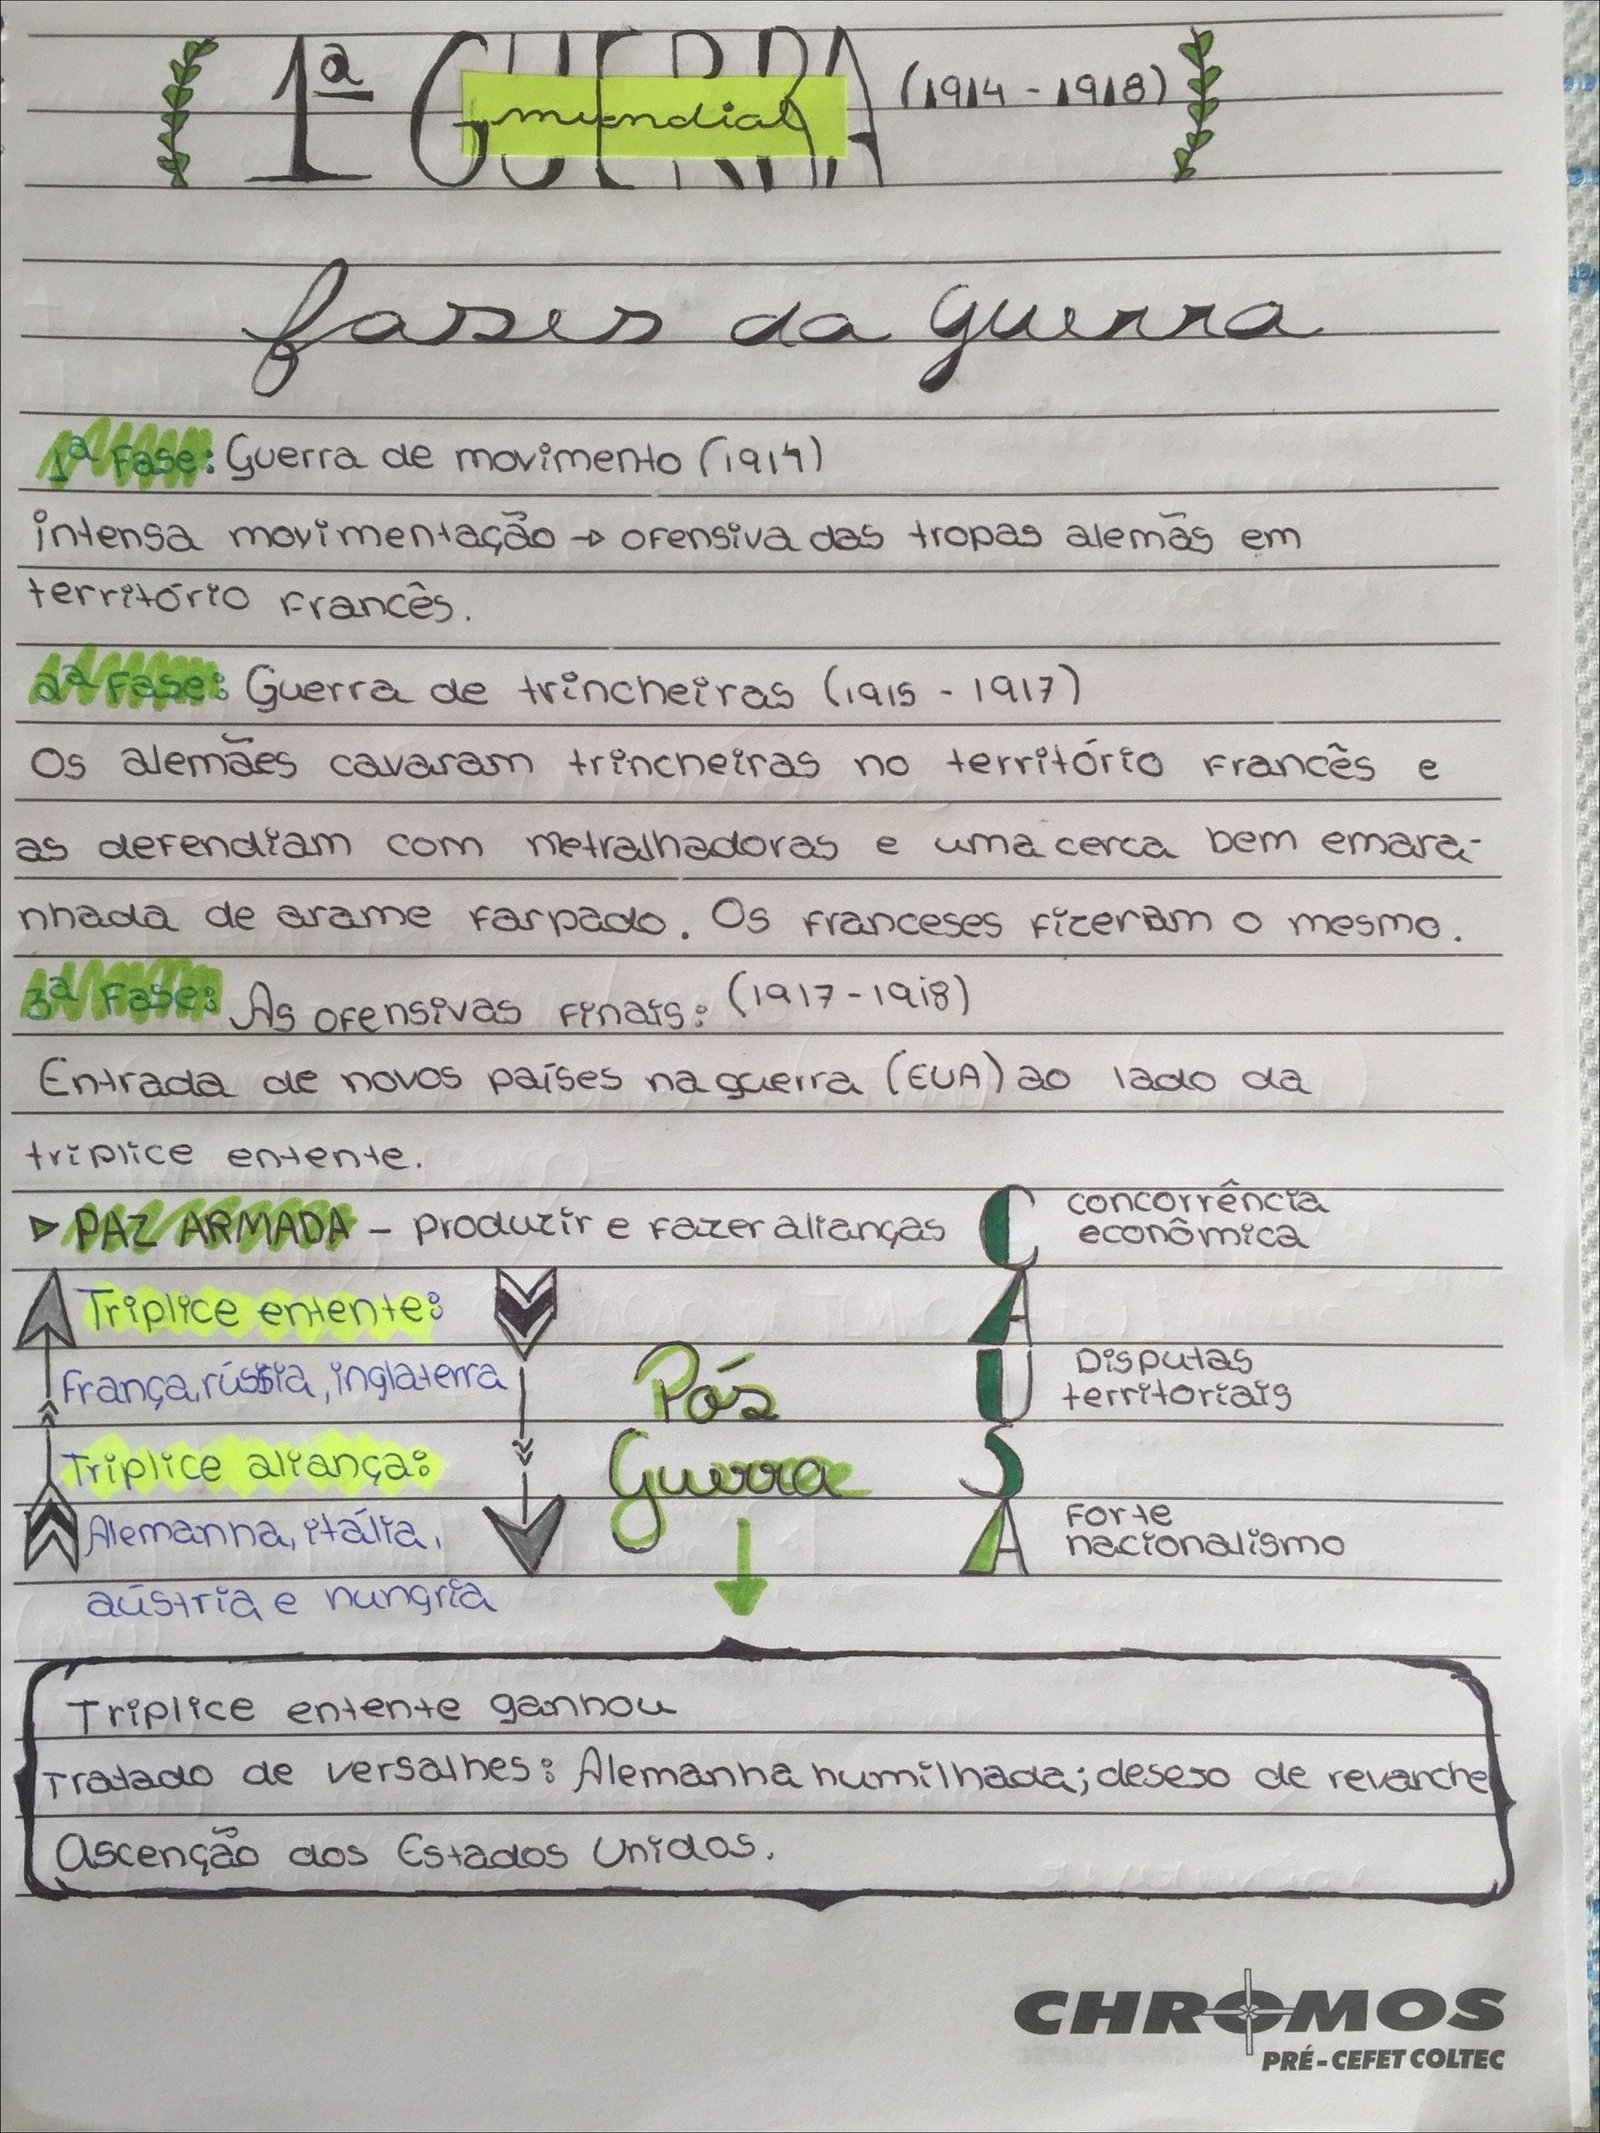 1ª GUERRA (1914 - 1918)
mundial
fases da guerra
1ª Fase: Guerra de movimento (1914)
intensa movimentação → ofensiva das tropas alemãs em
território Francês.
2ª Fase: Guerra de trincheiras (1915 - 1917)
Os alemães cavaram trincheiras no território Francês e
as defendiam com metralhadoras e uma cerca bem emara-
nhada de arame farpado. Os franceses fizeram o mesmo.
3ª Fase: As ofensivas finais: (1917-1918)
Entrada de novos países na guerra (EUA) ao lado da
triplice entente.
▷ PAZ ARMADA - Produzir e fazer alianças
Triplice entente:
França, rússia, inglaterra
Triplice aliança:
Alemanha, itália,
aústria e hungria
Pós
Guerra
CAUSA
concorrência
econômica
Disputas
territoriais
Forte
nacionalismo
Triplice entente ganhou
Tratado de versalhes: Alemanha humilhada; desejo de revanche
Ascenção dos Estados Unidos.
CHROMOS
PRÉ-CEFET COLTEC